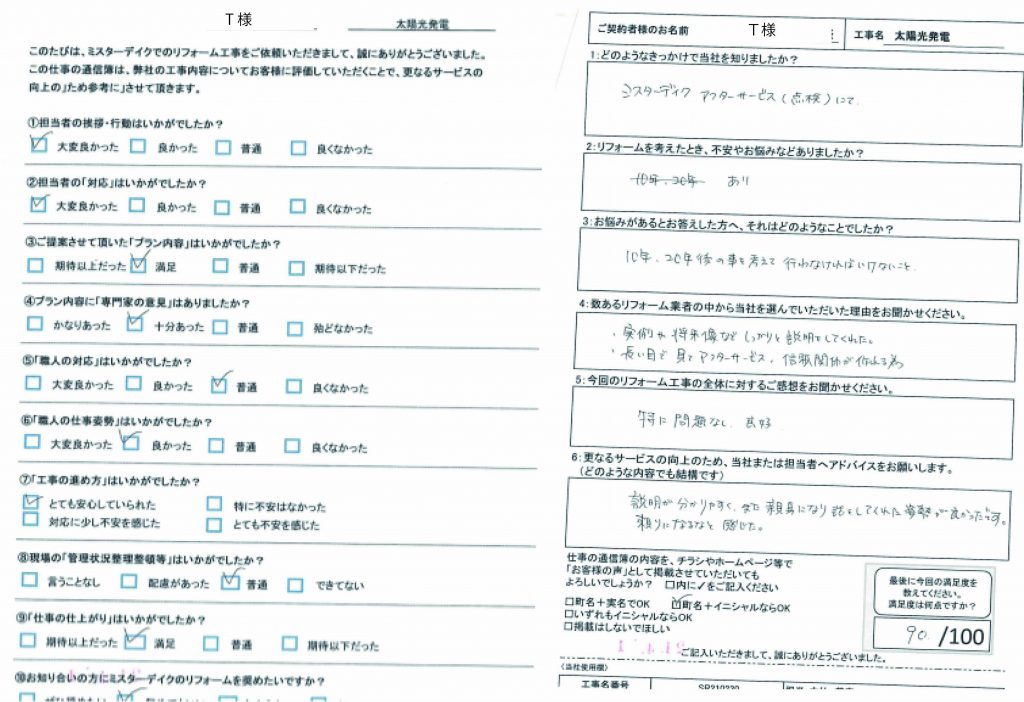 T様
太陽光発電
このたびは、ミスターデイクでのリフォーム工事をご依頼いただきまして、誠にありがとうございました。
この仕事の通信簿は、弊社の工事内容についてお客様に評価していただくことで、更なるサービスの
向上の」ため参考に」させて頂きます。
①担当者の挨拶・行動はいかがでしたか？
大変良かった 良かった 普通 良くなかった
②担当者の「対応」はいかがでしたか？
大変良かった 良かった 普通 良くなかった
③ご提案させて頂いた「プラン内容」はいかがでしたか？
期待以上だった 満足 普通 期待以下だった
④プラン内容に「専門家の意見」はありましたか？
かなりあった 十分あった 普通 殆どなかった
⑤「職人の対応」はいかがでしたか？
大変良かった 良かった 普通 良くなかった
⑥「職人の仕事姿勢」はいかがでしたか？
大変良かった 良かった 普通 良くなかった
⑦「工事の進め方」はいかがでしたか？
とても安心していられた 特に不安はなかった
対応に少し不安を感じた とても不安を感じた
⑧現場の「管理状況整理整頓等」はいかがでしたか？
言うことなし 配慮があった 普通 できてない
⑨「仕事の仕上がり」はいかがでしたか？
期待以上だった 満足 普通 期待以下だった
⑩お知り合いの方にミスターデイクのリフォームを奨めたいですか？
ご契約者様のお名前 T様 工事名 太陽光発電
1：どのようなきっかけで当社を知りましたか？
ミスターデイク アフターサービス（点検）にて
2：リフォームを考えたとき、不安やお悩みなどありましたか？
10年、20年 あり
3：お悩みがあるとお答えした方へ、それはどのようなことでしたか？
10年、20年後の事も考えて行わなければいけないこと
4：数あるリフォーム業者の中から当社を選んでいただいた理由をお聞かせください。
・実例や将来像などしっかりと説明をしてくれた。
・長い目で見てアフターサービス、信頼関係が作れる為
5：今回のリフォーム工事の全体に対するご感想をお聞かせください。
特に問題なし 良好
6：更なるサービスの向上のため、当社または担当者へアドバイスをお願いします。
（どのような内容でも結構です）
説明が分かりやすく、また親身になり話をしてくれた姿勢が良かったです。
頼りになるなと感じた。
仕事の通信簿の内容を、チラシやホームページ等で
「お客様の声」として掲載させていただいても
よろしいでしょうか？ □内に✓をご記入ください
□町名＋実名でOK ☑町名＋イニシャルならOK
□いずれもイニシャルならOK
□掲載はしないでほしい
最後に今回の満足度を
教えてください。
満足度は何点ですか？
90 /100
ご記入いただきまして、誠にありがとうございました。
（当社使用欄）
工事名番号